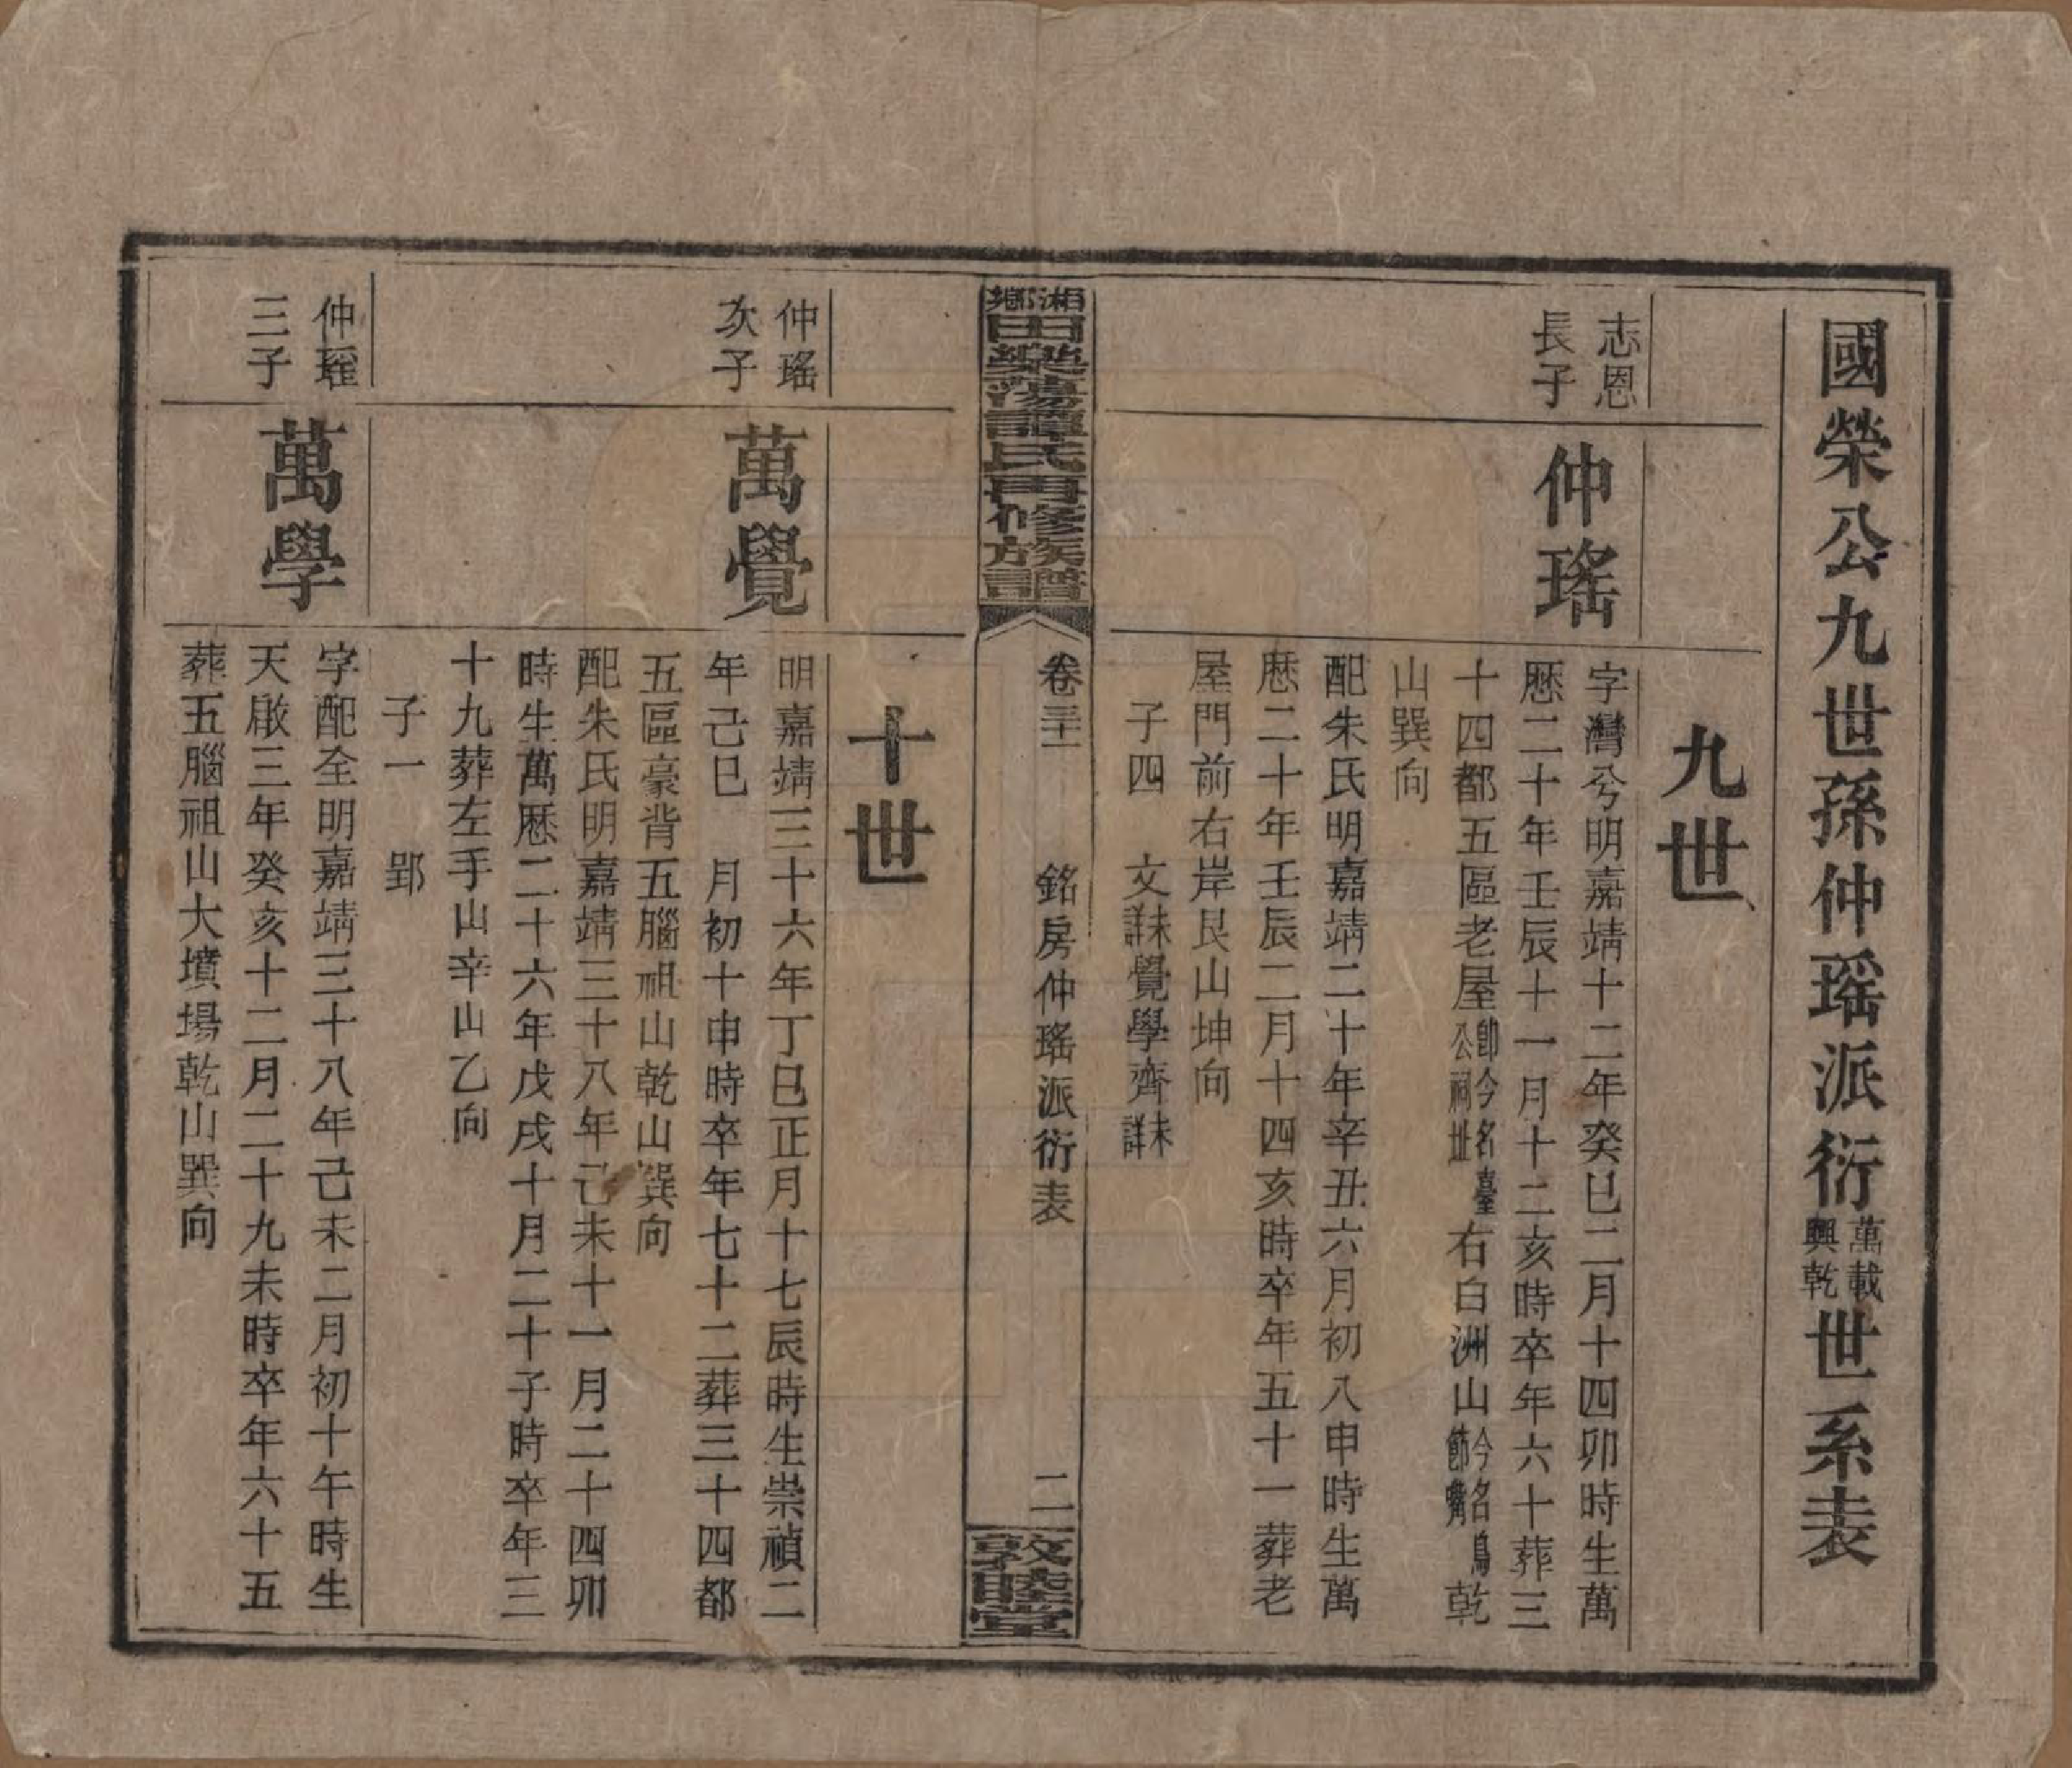 國榮公九世孫仲瑤派衍萬載興乾世系表
九世
志恩
長子
仲瑤
字灣兮明嘉靖十二年癸巳二月十四卯時生萬
厯二十年壬辰十一月十二亥時卒年六十葬三
十四都五區老屋卽今名臺公祠坵右白洲山今名鳥節嘴乾
山巽向
配朱氏明嘉靖二十年辛丑六月初八申時生萬
厯二十年壬辰二月十四亥時卒年五十一葬老
屋門前右岸艮山坤向
子四 文未詳覺學齊未詳
湘鄉田樂蕩譚氏再修族譜
卷三十一
銘房仲瑤派衍表
二
敦睦堂
十世
仲瑤
次子
萬覺
明嘉靖三十六年丁巳正月十七辰時生崇禎二
年己巳 月初十申時卒年七十二葬三十四都
五區豪背五腦祖山乾山巽向
配朱氏明嘉靖三十八年己未十一月二十四卯
時生萬厯二十六年戊戌十月二十子時卒年三
十九葬左手山辛山乙向
子一 郢
仲瑤
三子
萬學
字配全明嘉靖三十八年己未二月初十午時生
天啟三年癸亥十二月二十九未時卒年六十五
葬五腦祖山大墳場乾山巽向